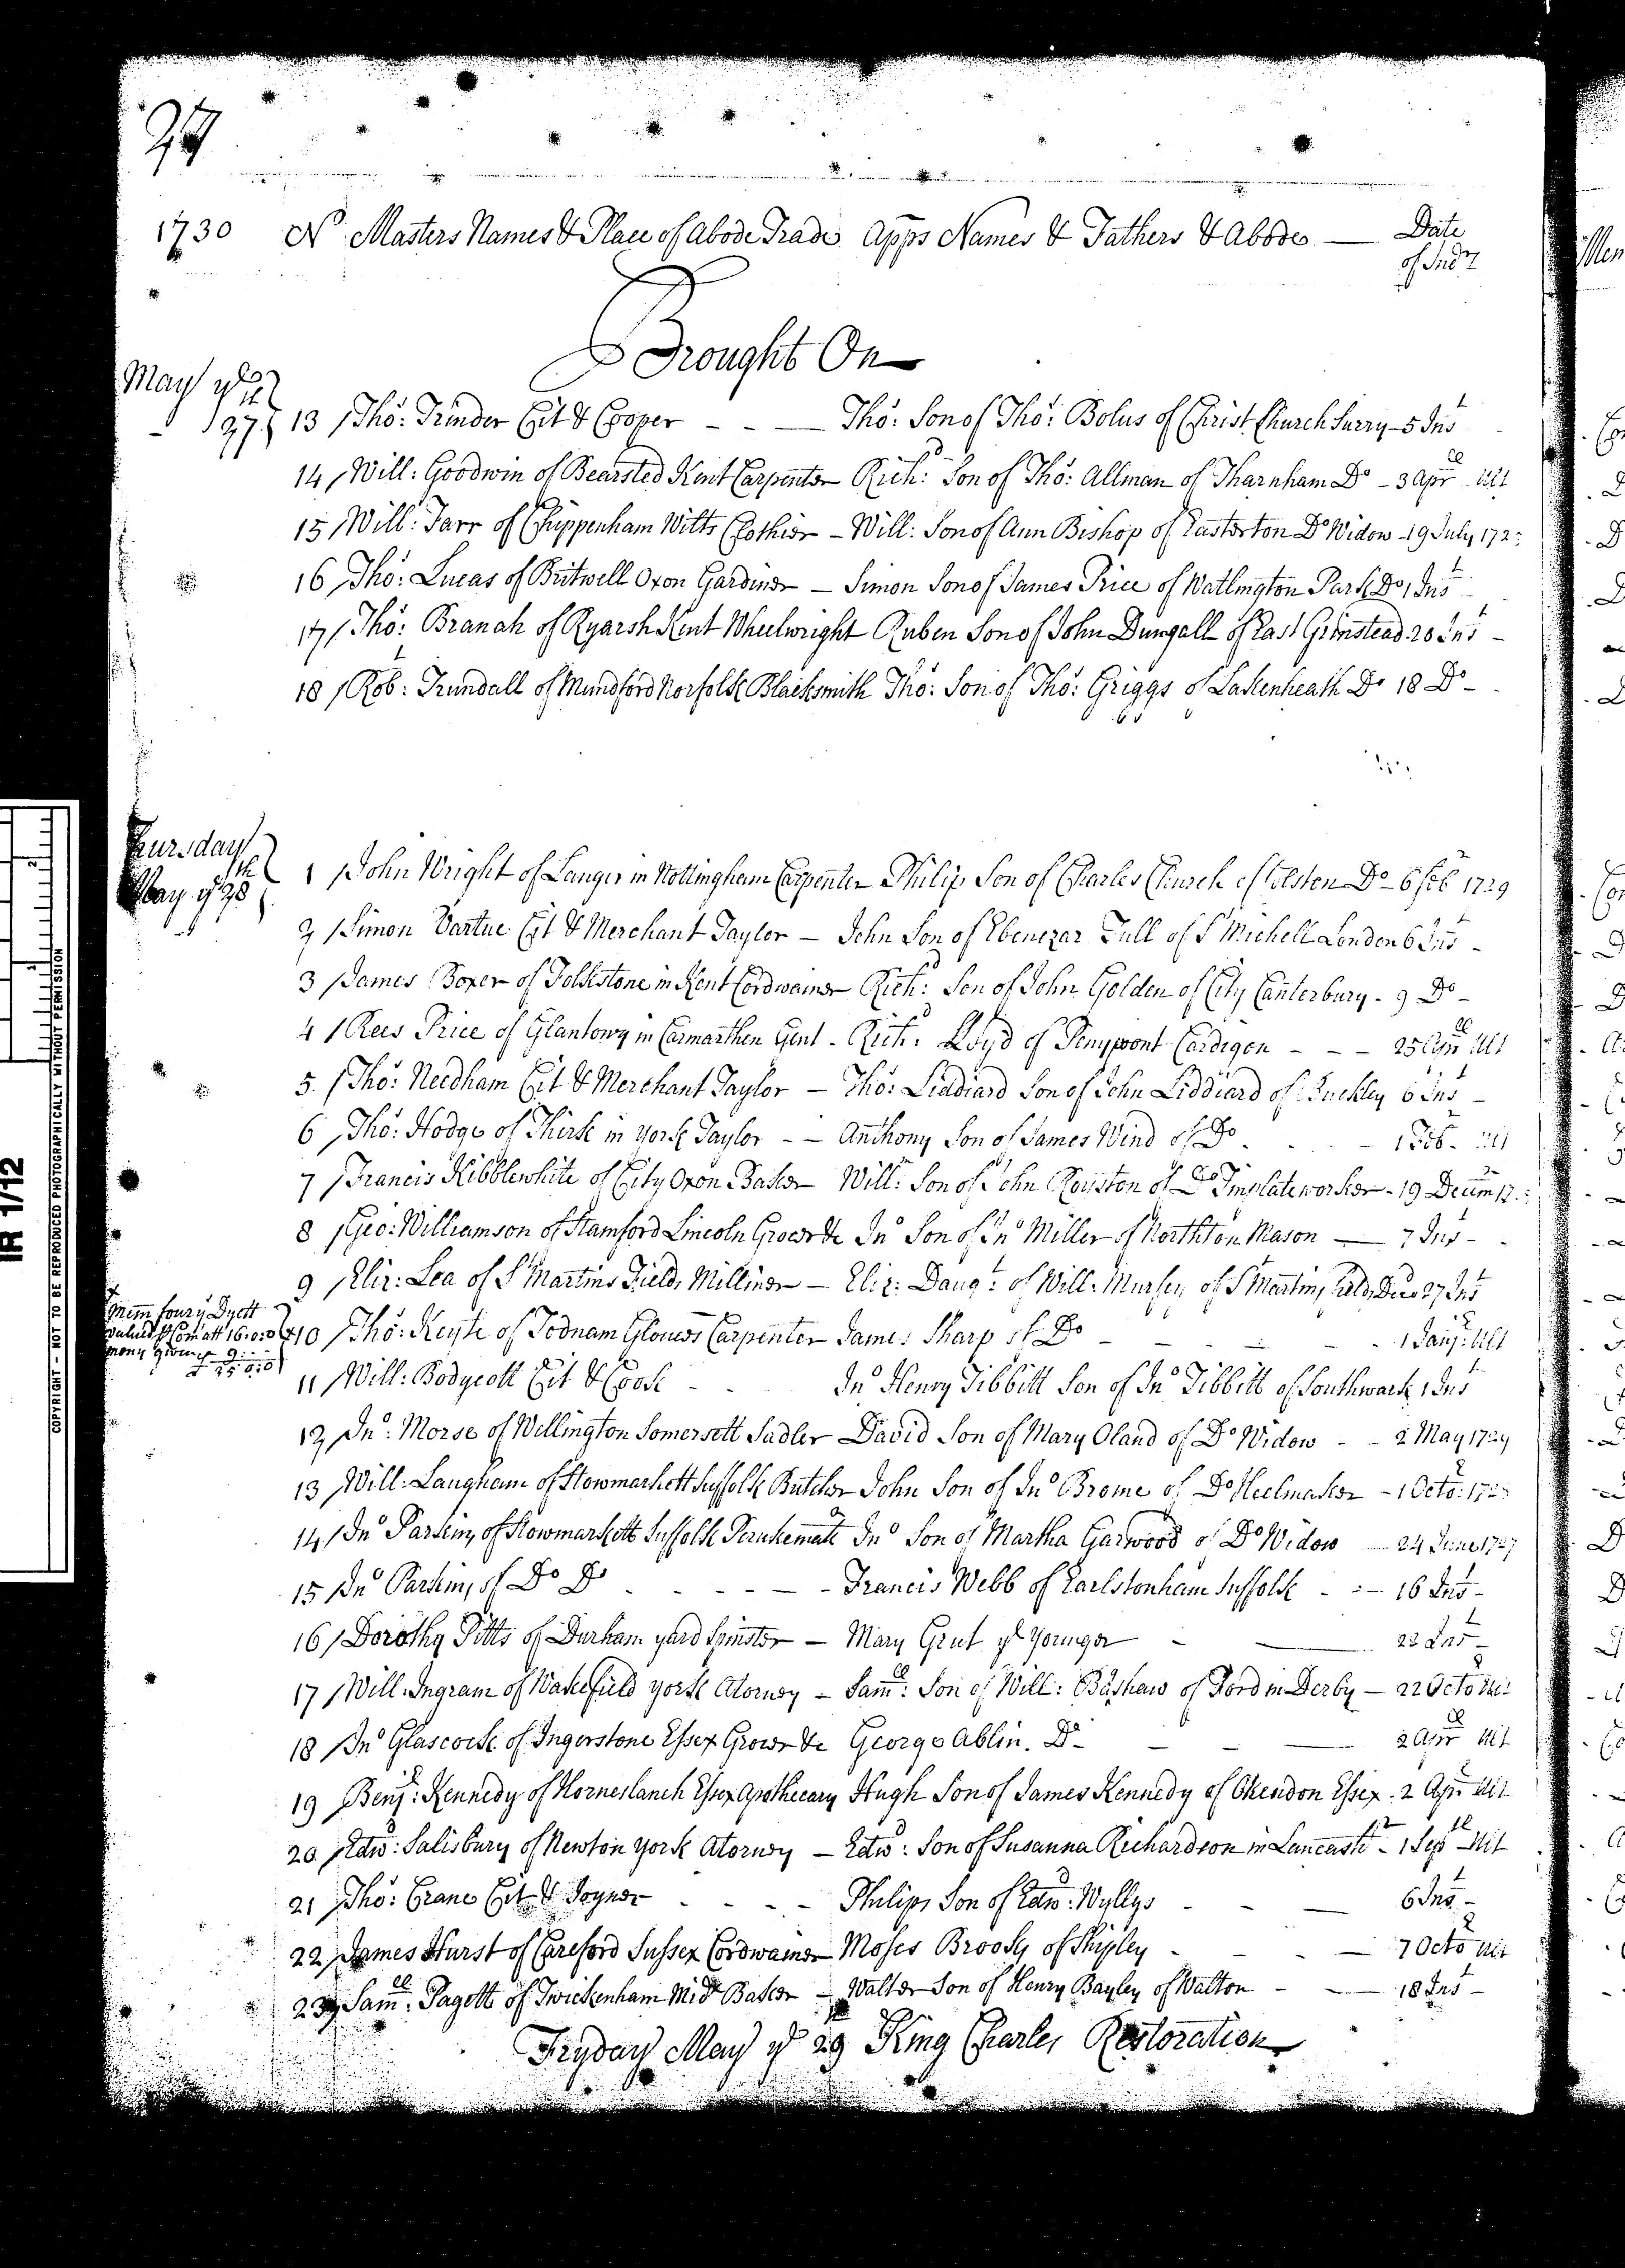 1730 No Masters Names & Place of Abode Trade Apps Names & Fathers & Abode — Date
of Indr
Brought On
May ye
27th 13 Tho: Trinder Cit & Cooper - - — Tho: Son of Tho: Bolus of Christ Church Surry - 5 Inst
14 Will: Goodwin of Bearsted Kent Carpenter Richd: Son of Tho: Allman of Tharnham Do - 3 Aprll Ult
15 Will: Tarr of Chippenham Wilts Clothier - Will: Son of Ann Bishop of Easterton Do Widow - 19 July 172
16 Tho: Lucas of Britwell Oxon Gardiner — Simon Son of James Price of Watlington Park Do 1 Inst
17 Tho: Branah of Ryarsh Kent Wheelwright Ruben Son of John Dungall of East Grinstead 20 Inst -
18 Robt: Trundall of Mundford Norfolk Blacksmith Tho: Son of Tho: Griggs of Lakenheath Do 18 Do -
Thursday
May ye 28th 1 John Wright of Langer in Nottingham Carpenter Philip Son of Charles Church of Do - 6 Feb 1729
2 Simon Vartue Cit & Merchant Taylor — John Son of Ebenezar Tull of St Michell London 6 Inst -
3 James Boxer of Folkstone in Kent Cordwainer Richd: Son of John Golden of City Canterbury - 9 Do -
4 Rees Price of Glantowy in Carmarthen Gent - Richd: Lloyd of Penypont Cardigan - - - 25 Aprll Ult
5 Tho: Needham Cit & Merchant Taylor — Tho: Liddiard Son of John Liddiard of 6 Inst -
6 Tho: Hodge of Thirsk in York Taylor - - Anthony Son of James Wind of Do - 1 Feb. Ult
7 Francis Kibblewhite of City Oxon Baker Will: Son of John Rouston of Do Tinplateworker - 19 Decem
8 Geo: Williamson of Stamford Lincoln Grocer &c Jno Son of Jno Miller of Northton Mason — 7 Inst -
9 Eliz: Lea of St Martins Fields Milliner — Eliz: Daugt: of Will: of St Martins Fields 27 Inst
Mem
valued
mony given
10 Tho: Keyte of Todnam Glouces Carpenter James Sharp of Do - - - 1 Jany: Ult
11 Will: Bodycott Cit & Cook - - Jno Henry Tibbitt Son of Jno Tibbitt of Southwark 1 Inst
12 Jno: Morse of Wellington Somersett Sadler David Son of Mary Oland of Do Widow - - 2 May 1729
13 Will: Langham of Stowmarkett Suffolk Butcher John Son of Jno Brome of Do Heelmaker - 1 Octo: 172
14 Jno Parkins of Stowmarkett Suffolk Jno Son of Martha Garwood of Do Widow — 24 June 1727
15 Jno Parkins of Do Do - - - — Francis Webb of Earlstonham Suffolk - — 16 Inst -
16 Dorothy Pitts of Durham yard Spinster — Mary Grut ye Younger - — 22 Inst -
17 Will: Ingram of Wakefield York Atorney - Samll: Son of Will: Bashaw of Ford in Derby — 22 Octo Ult
18 Jno Glascock of Ingerstone Essex Grocer &c George Ablin. Do - — - — 2 Aprll Ult
19 Benj: Kennedy of Essex Apothecary Hugh Son of James Kennedy of Okendon Essex - 2 Apr Ult
20 Edwd: Salisbury of Newton York Atorney — Edwd: Son of Susanna Richardson in Lancashr - 1 Sept Ult
21 Tho: Crane Cit & Joyner - - - - Philip Son of Edwd: Wyllys - - — 6 Inst -
22 James Hurst of Sussex Cordwainer Moses Brooks of Shipley - - - — 7 Octo Ult
23 Samll: Pagett of Twickenham Midx Baker - Walter Son of Henry Bayley of Walton - — 18 Inst -
Fryday May ye 29 King Charles Restoration
IR 1/12
COPYRIGHT - NOT TO BE REPRODUCED PHOTOGRAPHICALLY WITHOUT PERMISSION